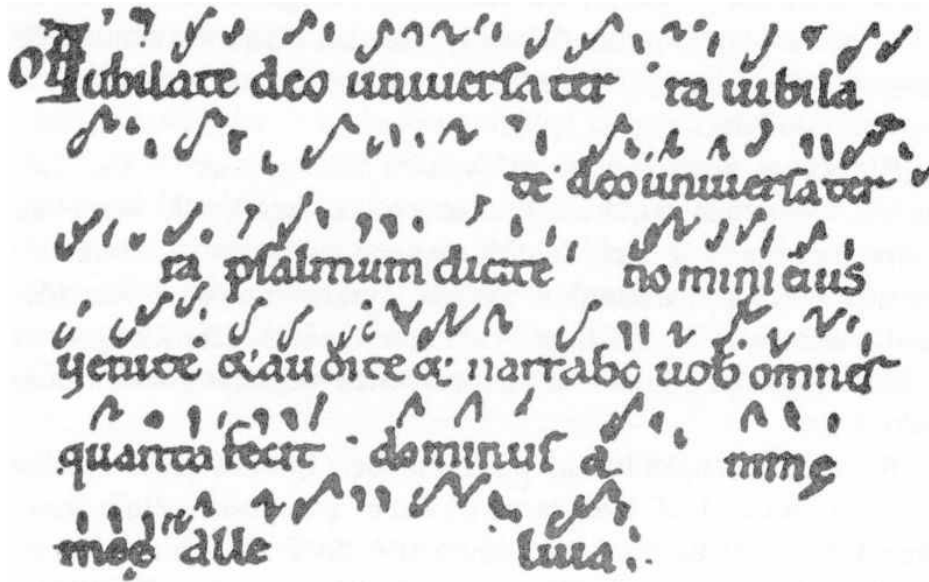 Of Iubilate deo uniuersa ter ra iubila
te deo uniuersa ter
ra psalmum dicite nomini eius
uenite & audite & narrabo uob omnes
quanta fecit dominus a nimę
męę alle luia.